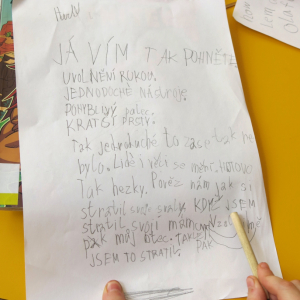 JÁ VÍM TAK POHNĚTE
UVOLNĚNÍ RUKOU.
JEDNODUCHÉ NÁSTROJE.
POHYBLIVÝ palec.
KRATŠÍ PRSTY.
Tak jednoduché to zase tak ne
bylo. Lidé i věci se mění.
Tak hezky. Pověz nám jak si
stratil svoje svaly. KDYŽ JSEM
stratil svoji mámu
pak můj otec. TAKLE PAK
JSEM TO STRATIL.